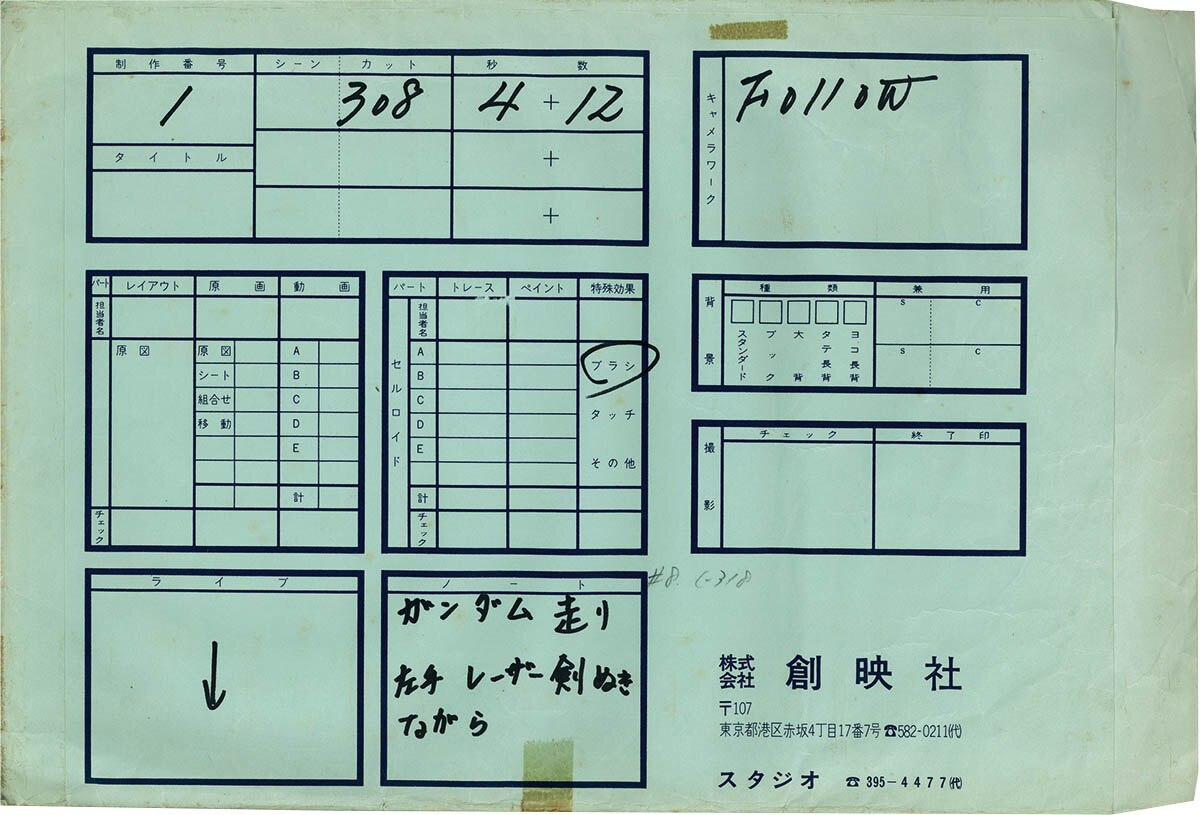 制作番号
1
タイトル
シーン カット
308
秒数
4 + 12
+
+
キャメラワーク
Follow
パート レイアウト 原画 動画
担当者名
原図 原図 A
シート B
組合せ C
移動 D
E
計
チェック
パート トレース ペイント 特殊効果
担当者名
セルロイド
A
B
C
D
E
計
チェック
ブラシ
タッチ
その他
背景
種類 兼用
スタンダード
ブック
大背
タテ長背
ヨコ長背
S C
S C
撮影
チェック 終了印
ライブ
↓
ノート
ガンダム 走り
左手 レーザー剣ぬき
ながら
#8. C-318
株式会社 創映社
〒107
東京都港区赤坂4丁目17番7号 ☎582-0211(代)
スタジオ ☎ 395-4477(代)